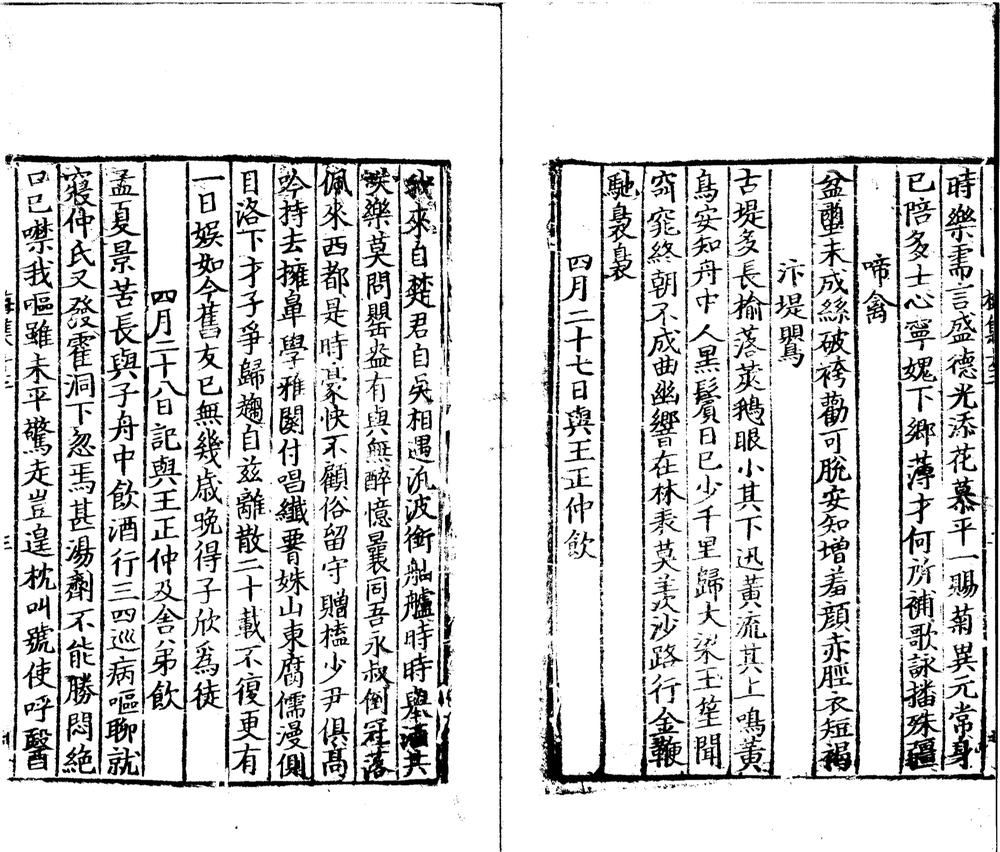 時樂需言盛德光添花慕平一賜菊異元常身
已陪多士心寧媿下鄉薄才何所補歌詠播殊疆
啼禽
盆蠒未成絲破袴勸可脫安知增羞顏赤脛衣短褐
汴堤鸎
古堤多長榆落莢鵝眼小其下迅黃流其上鳴黃
鳥安知舟中人黑鬢日已少千里歸大梁玉堂聞
窈窕終朝不成曲幽響在林表莫羨沙路行金鞭
馳褭褭
四月二十七日與王正仲飲
我來自楚君自吳相遇汎波銜舳艫時時舉酒共
笑樂莫問罌盎有與無醉憶曩同吾永叔倒冠落
佩來西都是時豪快不顧俗留守贈榼少尹俱高
吟持去擁鼻學雅闋付唱纖脣姝山東腐儒漫側
目洛下才子爭歸趨自茲離散二十載不復更有
一日娛如今舊友已無幾歲晚得子欣為徒
四月二十八日記與王正仲及舍弟飲
孟夏景苦長與子舟中飲酒行三四巡病嘔聊就
寢仲氏又發霍洞下忽焉甚湯劑不能勝悶絕
口已噤我嘔雖未平驚走豈遑枕叫號使呼醫